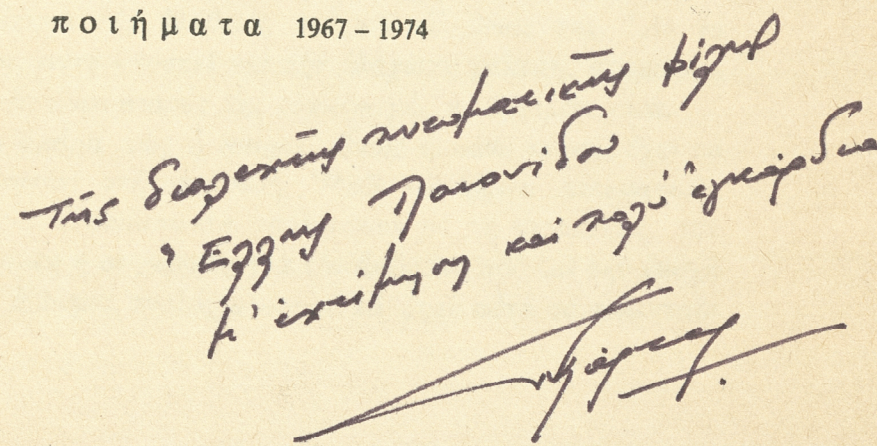 ποιήματα 1967 – 1974
Τῆς διαλεχτῆς πνευματικῆς φίλης
Ἕλλης Παιονίδου
μ' ἐκτίμηση καί πολύ ἐγκάρδια